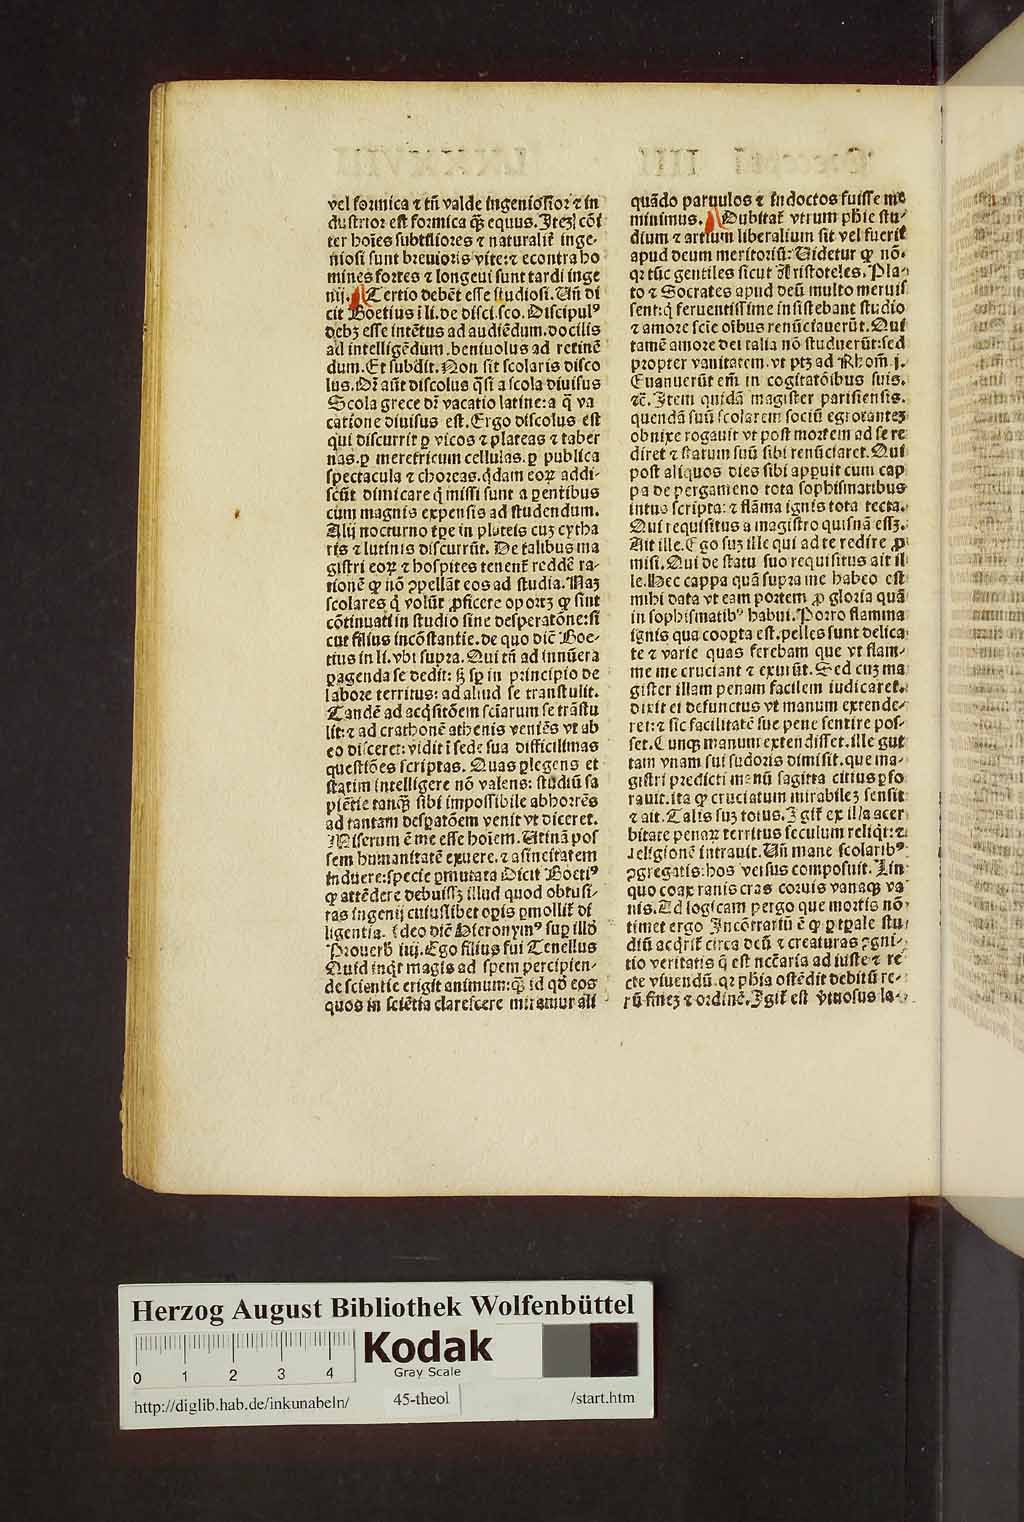 vel formica ⁊ tñ valde ingeniosior ⁊ in
dustrior est formica q̃ꝫ equus. Jteꝫ cõi
ter hoĩes subtiliores ⁊ naturalit̃ inge-
niosi sunt breuioris vite: ⁊ econtra ho
mines fortes ⁊ longeui sunt tardi inge
nij. Tertio debẽt esse studiosi. Vñ di
cit Boetius ĩ li. de disci. sco. Discipulꝰ
debꝫ esse intẽtus ad audiẽdum. docilis
ad intelligẽdum. beniuolus ad retinẽ
dum. Et subdit. Non sit scolaris disco
lus. Dr̃ aũt discolus q̃si a scola diuisus
Scola grece dr̃ vacatio latine: a q̃ va
catione diuisus est. Ergo discolus est
qui discurrit ꝑ vicos ⁊ plateas ⁊ taber
nas. ꝑ meretricum cellulas. ꝑ publica
spectacula ⁊ choreas. q̇dam eoꝝ addi-
scũt dimicare q̇ missi sunt a ꝑentibus
cum magnis expensis ad studendum.
Alij nocturno tꝑe in plateis cuꝫ cytha
ris ⁊ lutinis discurrũt. De talibus ma
gistri eoꝝ ⁊ hospites tenent̃ reddẽ ra-
tionẽ ꝙ nõ ꝯpellãt eos ad studia. Naꝫ
scolares q̇ volũt ꝓficere oportꝫ ꝙ sint
cõtinuati in studio sine desperatõne: si
cut filius incõstantie. de quo dic̃ Boe-
tius in li. vbi supra. Qui tñ ad innũera
ꝑagenda se dedit: sꝫ sꝑ in principio de
labore territus: ad aliud se transtulit.
Tandẽ ad acq̇sitõem sciarum se trãstu
lit: ⁊ ad crathonẽ athenis veniẽs vt ab
eo disceret: vidit ĩ sede sua difficilimas
questiões scriptas. Quas ꝑlegens et
statim intelligere nõ valens: studiũ sa
piẽtie tanq̃ꝫ sibi impossibile abhorrẽs
ad tantam desꝑatõem venit vt diceret.
Miserum ẽ me esse hoĩem. Utinã pos
sem humanitatẽ exuere. ⁊ asineitatem
induere: specie ꝑmutata Dicit Boetiꝰ
ꝙ attẽdere debuissꝫ illud quod obtusi-
tas ingenij cuiuslibet oꝑis ꝑmollit̃ di
ligentia. ideo dic̃ Hieronymꝰ suꝑ illd̃
Prouerb̃ iiij. Ego filius fui Tenellus
Quid inq̇t magis ad spem percipien-
de scientie erigit animum: q̃ꝫ id qd̃ eos
quos in sciẽtia clarescere miramur ali
quãdo paruulos ⁊ indoctos fuisse me
minimus. Dubitat̃ vtrum ph̃ie stu-
dium ⁊ artium liberalium sit vel fuerit
apud deum meritoriũ: Uidetur ꝙ nõ.
qꝛ tũc gentiles sicut Aristoteles. Pla-
to ⁊ Socrates apud deũ multo meruis
sent: q̇ feruentissime insistebant studio
⁊ amore scĩe oĩbus renũciauerũt. Qui
tamẽ amore dei talia nõ studuerũt: sed
propter vanitatem. vt ptꝫ ad Rhom̃. j.
Euanuerũt em̃ in cogitatõibus suis.
⁊c̃. Item quidã magister parisiensis.
quendã suũ scolarem sociũ egrotanteꝫ
obnixe rogauit vt post mortem ad se re
diret ⁊ statum suũ sibi renũciaret. Qui
post aliquos dies sibi apꝑuit cum cap
pa de pergameno tota sophismatibus
intus scripta: ⁊ flãma ignis tota tecta.
Qui requisitus a magistro quisnã essꝫ.
Ait ille. Ego suꝫ ille qui ad te redire ꝓ
misi. Qui de statu suo requisitus ait il
le. Hec cappa quã supra me habeo est
mihi data vt eam portem ꝓ gloria quã
in sophismatibꝰ habui. Porro flamma
ignis qua cooꝑta est. pelles sunt delica
te ⁊ varie quas ferebam que vt flam-
me me cruciant ⁊ exurũt. Sed cuꝫ ma
gister illam penam facilem iudicaret.
dixit ei defunctus vt manum extende-
ret: ⁊ sic facilitatẽ sue pene sentire pos-
set. Cunqꝫ manum extendisset. ille gut
tam vnam sui sudoris dimisit. que ma-
gistri predicti manũ sagitta citius ꝑfo
rauit. ita ꝙ cruciatum mirabileꝫ sensit
⁊ ait. Talis suꝫ totus. Igit̃ ex illa acer
bitate penaꝝ territus seculum reliq̇t: ⁊
religionẽ intrauit. Vñ mane scolaribꝰ
ꝯgregatis: hos versus composuit. Lin
quo coax ranis cras coruis vanaqꝫ va
nis. Ad logicam pergo que mortis nõ
timet ergo Incõtrariũ ẽ ꝙ ꝑ tꝑale stu
diũ acq̇rit̃ circa deũ ⁊ creaturas ꝯgni-
tio veritatis q̃ est nec̃aria ad iuste ⁊ re
cte viuendũ. qꝛ ph̃ia ostẽdit debitũ re-
rũ fineꝫ ⁊ ordinẽ. Igit̃ est v̓tuosus la-
Herzog August Bibliothek Wolfenbüttel
Kodak
Gray Scale
0 1 2 3 4
http://diglib.hab.de/inkunabeln/ 45-theol /start.htm